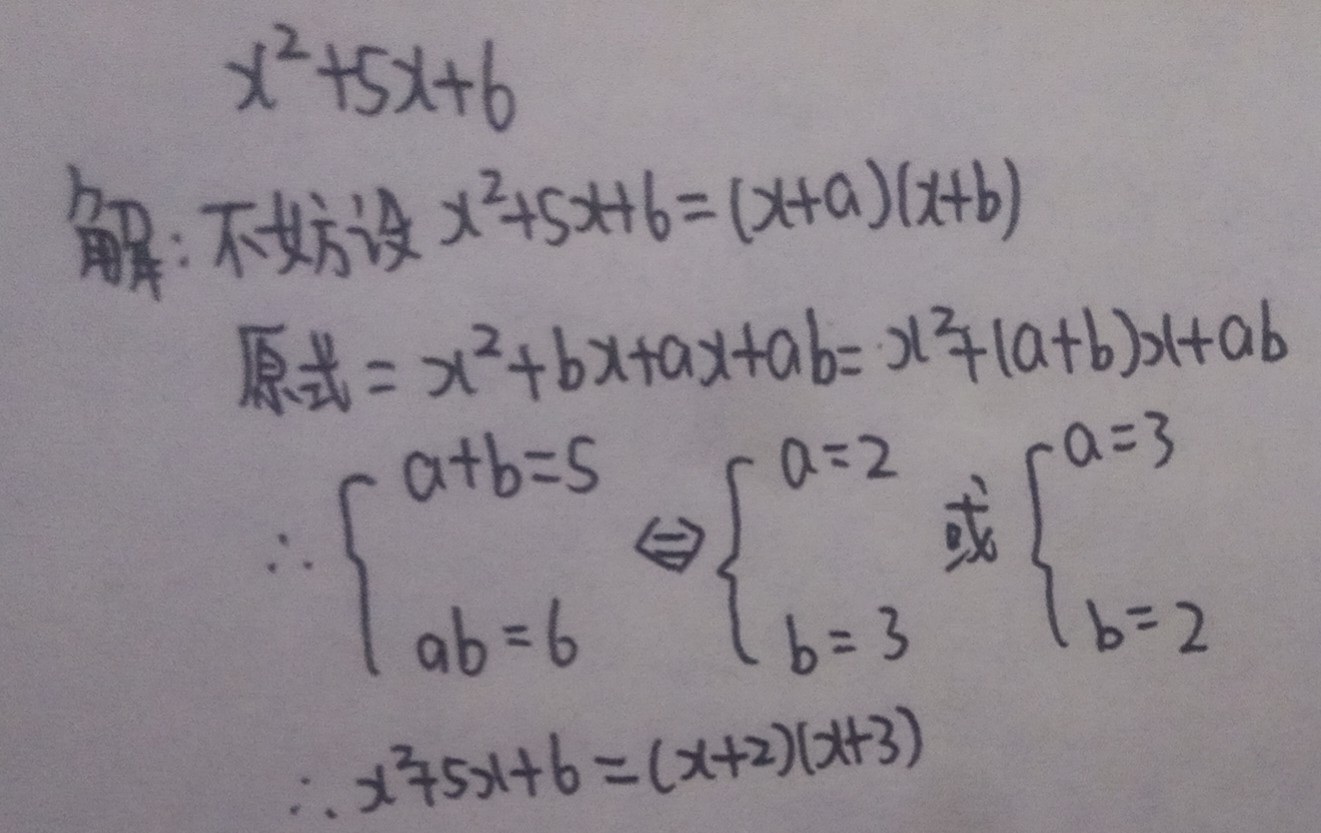 x²+5x+6
解：不妨设 x²+5x+6=(x+a)(x+b)
原式=x²+bx+ax+ab=x²+(a+b)x+ab
∴ { a+b=5 ⇔ { a=2 或 { a=3
ab=6 b=3 b=2
∴ x²+5x+6=(x+2)(x+3)